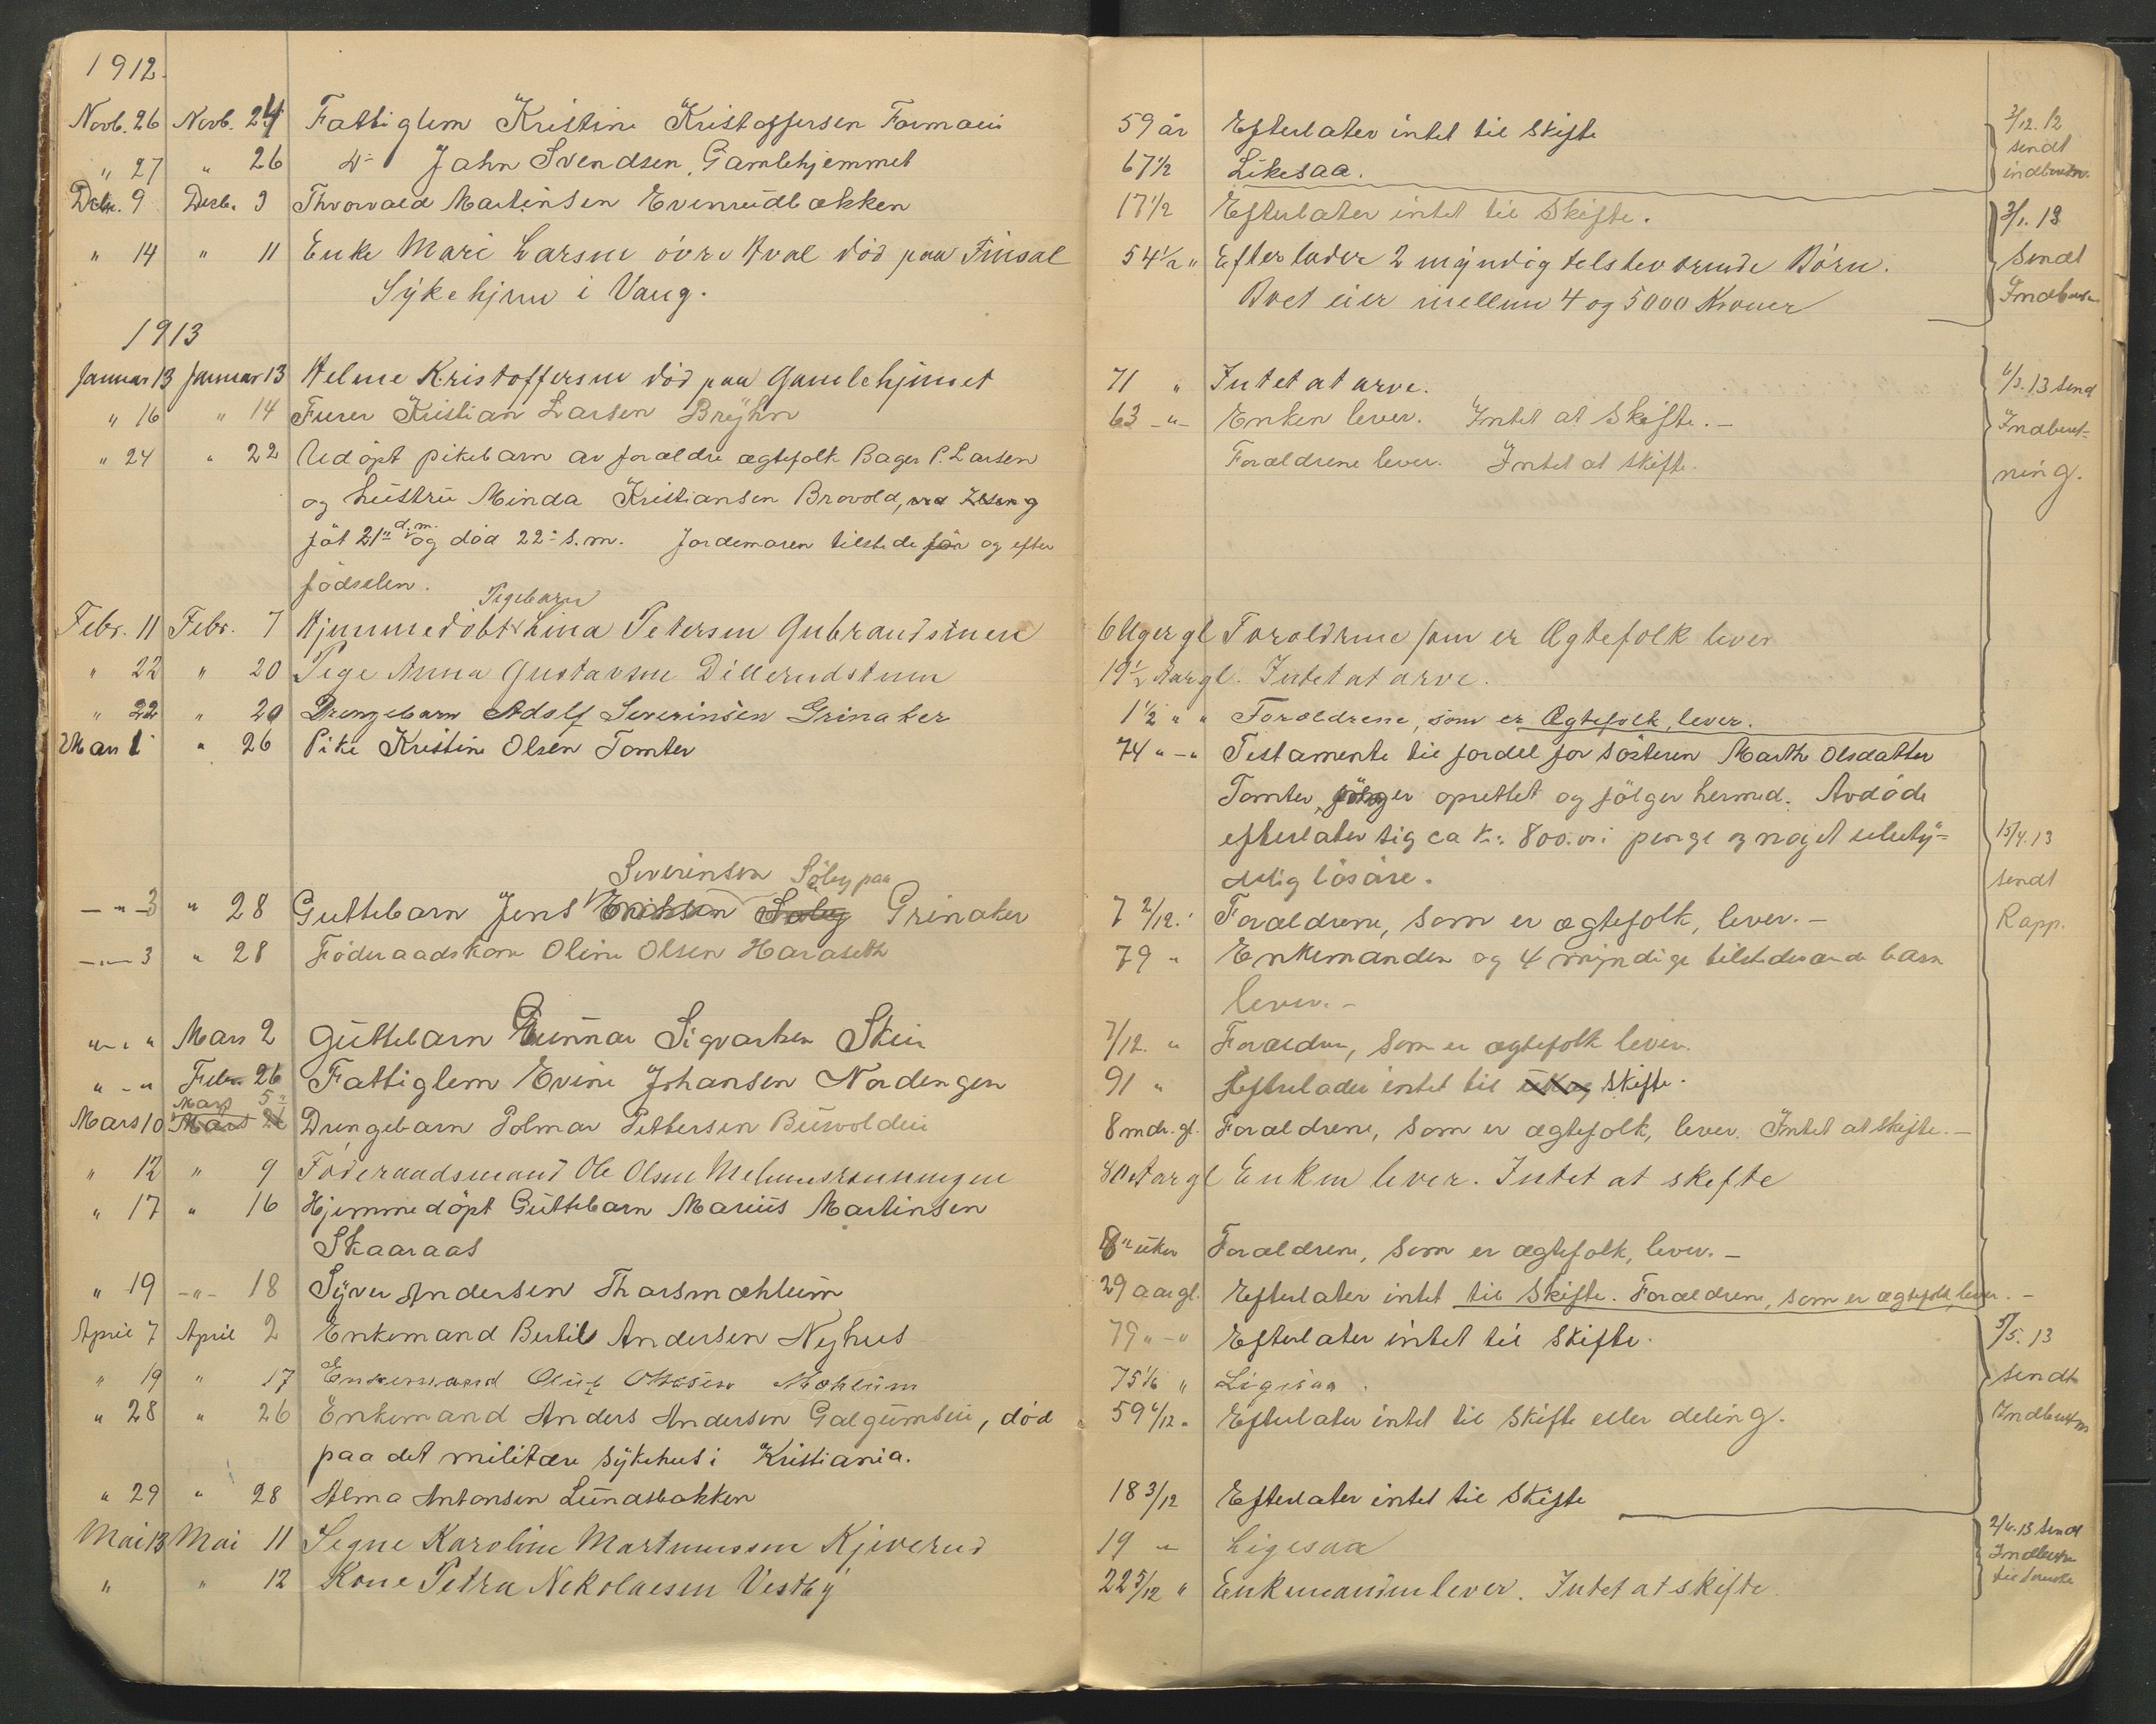 1912.
Novb. 26 Novb. 24 Fattiglem Kristine Kristoffersen Formoen 59 år Efterlater intet til Skifte
" 27 " 26 do Jahn Svendsen, Gamlehjemmet 67 1/2 Likesaa.
2/12. 12
sendt
Decbr. 9 Decbr. 3 Thorvald Martinsen Evenrudbakken 17 1/2 Efterlater intet til Skifte.
" 14 " 11 Enke Mari Larsen övre Aval död paa Finsal 54 1/2 " Efterlader 2 myndig telsteværende Börn.
Sykehjem i Vang. Boet eier mellem 4 og 5000 Kroner
2/1. 13
Sendt
1913
Januar 13 Januar 13 Helene Kristoffersen död paa Gamlehjemet 71 " Intet at arve.
" 16 " 14 Furer Kristian Larsen Bryhn 63 -"- Enken lever. Intet at Skifte. -
" 24 " 22 Udöpt pikebarn av forældre ægtefolk Bager P. Larsen Forældrene lever. Intet at skifte.
og hustru Minda Kristiansen Brovold,
föt 21de d.m. og död 22de s.m. Jordemoren tilstede før og efter
födselen.
6/3. 13 Send
Indberet-
ning.
Pigebarn
Febr. 11 Febr. 7 Hjemmedöbt Lina Petersen Gubrandstuen 6 Uger gl Foroldrene som er Ægtefolk lever
" 22 " 20 Pige Anna Gustavsen Dillerudstuen 19 1/2 Aar gl. Intet at arve.
" 22 " 20 Drengebarn Adolf Severinsen Grinaker 1 1/2 " " Foroldrene, som er Ægtefolk, lever.
Mars 1 " 26 Pike Kristine Olsen Tomter 74 "-" Testamente til fordel for sösteren Marthe Olsdatter
Tomter, er oprettet og fölger hermed. Avdöde
efterlater sig ca kr. 800.00 i penge og noget ubety-
delig lösöre.
Severinsen Söby paa
-"- 3 " 28 Guttebarn Jens Eriksen Söby Grinaker 7 2/12. Forældrene, som er ægtefolk, lever. -
-"- 3 " 28 Föderaadskone Oline Olsen Haraseth 79 " Enkemanden og 4 myndige tilstedeværende barn
lever. -
15/4. 13
sendt
Rapp.
"-" " Mars 2 Guttebarn Gunnar Sigvartsen Skur 7/12. " Forældre, som er ægtefolk lever.
"-" Febr. 26 Fattiglem Evine Johansen Nordengen 91 " Efterlader intet til Skifte.
Mars 5
Mars 10 Mars Drengebarn Polmar Pettersen Bürvoldeie 8 mdr. gl. Forældrene, som er ægtefolk, lever. Intet at skifte. -
" 12 " 9 Föderaadsmand Ole Olsen Melumsrønningen 80 Aar gl Enken lever. Intet at skefte
" 17 " 16 Hjemmedöpt Guttebarn Marius Martinsen
Skaaraas 8 uker Forældrene, som er ægtefolk, lever. -
" 19 -"- 18 Syver Andersen Thorsmæhlum 29 aar gl. Efterlater intet til Skifte. Forældrene, som er ægtefolk, lever. -
April 7 April 2 Enkemand Bertil Andersen Nyhus 79 "-" Efterlater intet til skifte.
" 19 " 17 Enkemand Oluf Ottesen Mæhlum 75 1/6 " Ligesaa.
" 28 " 26 Enkemand Anders Andersen Galgumseie, död 59 6/12 " Efterlater intet til Skifte eller deling.
paa det militære sykehus i Kristiania.
5/5. 13
sendt
" 29 " 28 Alma Antonsen Lundsbakken 18 3/12 Efterlater intet til Skifte
Mai 13 Mai 11 Segne Karoline Martinussen Kjiverud 19 " Ligesaa
" " 12 Kone Petra Nekolaesen Vestby 22 5/12 " Enkemanden lever. Intet at skifte.
2/6. 13 Sendt